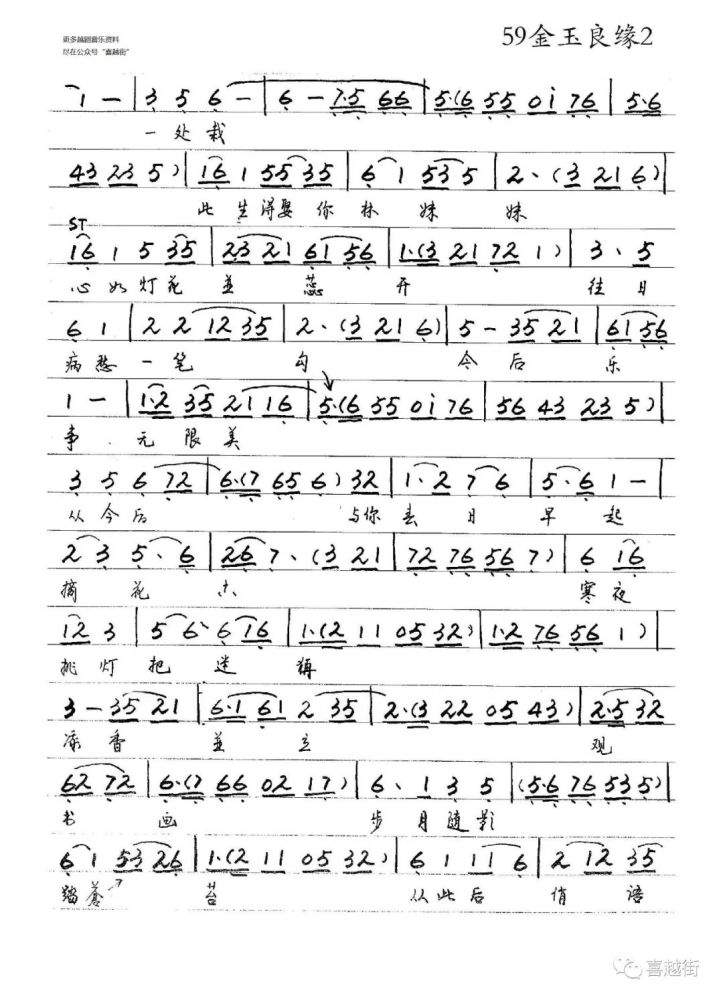 更多越剧音乐资料
尽在公众号“喜越街”
59金玉良缘2
1 — | 3 5 6 — | 6 — 7·5 66 | 5·(6 55 0i 76 | 5·6
一处栽
43 23 5) | 16 1 55 35 | 6 1 53 5 | 2· (3 21 6) |
此生得娶你林妹妹
ST
16 1 5 35 | 23 21 61 56 | 1·(3 21 72 1) | 3· 5
心如灯花并蕊开 往日
6 1 | 2 2 12 35 | 2· (3 21 6) | 5 — 35 21 | 61 56
病愁一笔勾 今后乐
1 — | 1·2 35 21 16 | 5·(6 55 0i 76 | 56 43 23 5) |
事无限美
3 5 6 72 | 6·(7 65 6) 32 | 1·2 7 6 | 5·6 1 — |
从今后 与你春日早起
2 3 5·6 | 26 7·(3 21 | 72 76 56 7) | 6 16
摘花去 寒夜
12 3 | 5 6· 6 16 | 1·(2 11 05 32) | 1·2 76 56 1) |
挑灯把迷猜
3 — 35 21 | 6·1 61 2 35 | 2·(3 22 05 43) | 2·5 32
添香并立 观
62 72 | 6·(7 66 02 17) | 6· 1 3 5 | (5·6 76 53 5) |
书画 步月随影
6 1 53 26 | 1·(2 11 05 32) | 6 1 11 6 | 2 12 35 |
踏苍苔 从此后俏语
喜越街